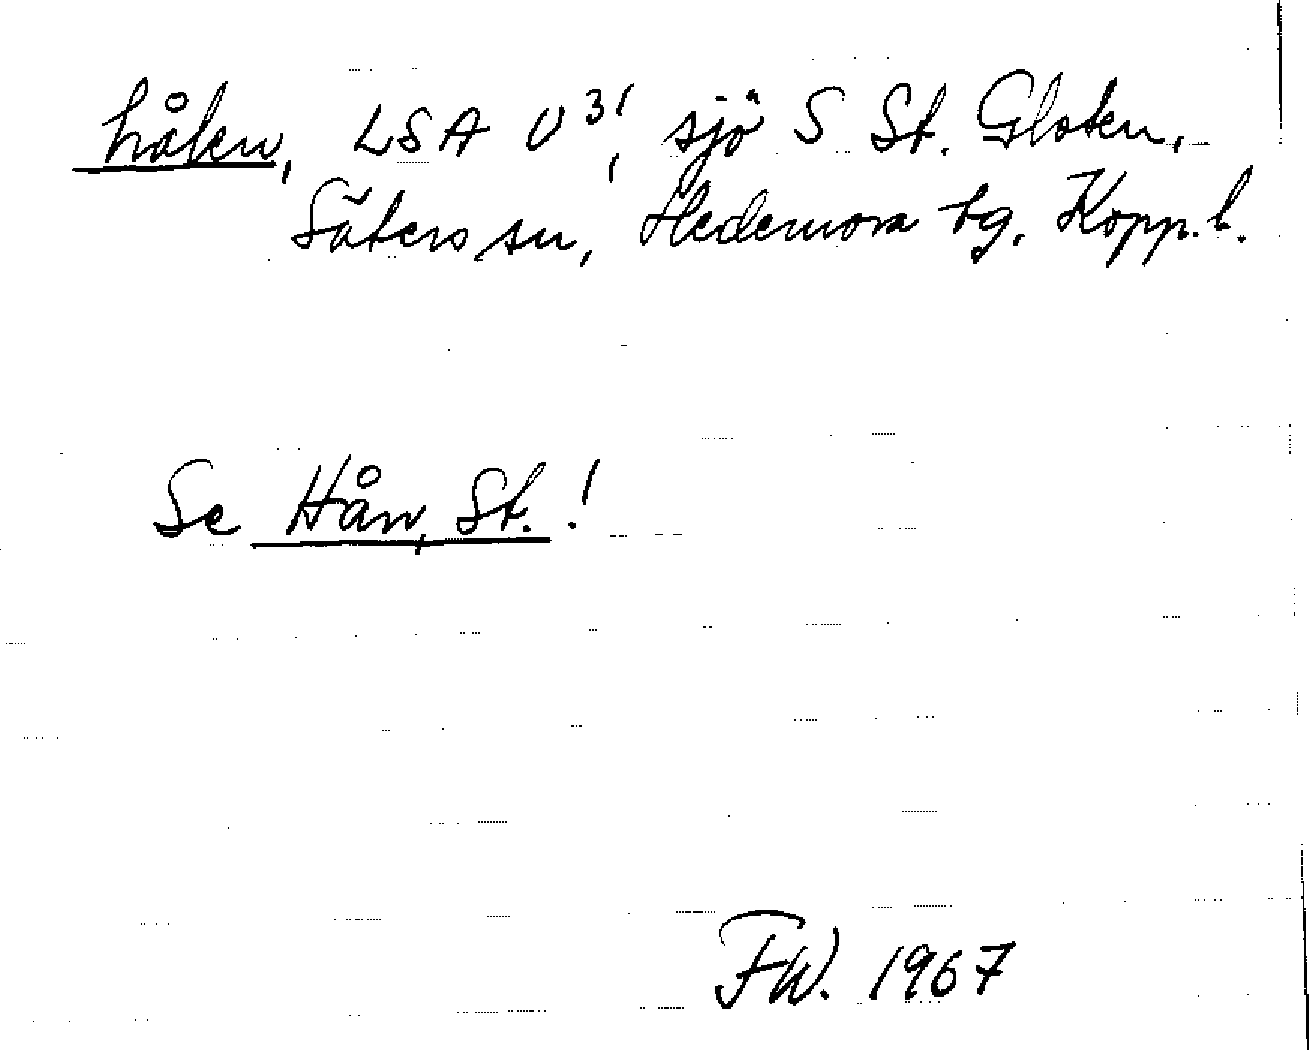 håken, LSA U³!, sjö S St. Gloten,
Säters sn, Hedemora tg, Kopp. l.
Se Hån, St.!
FW. 1967